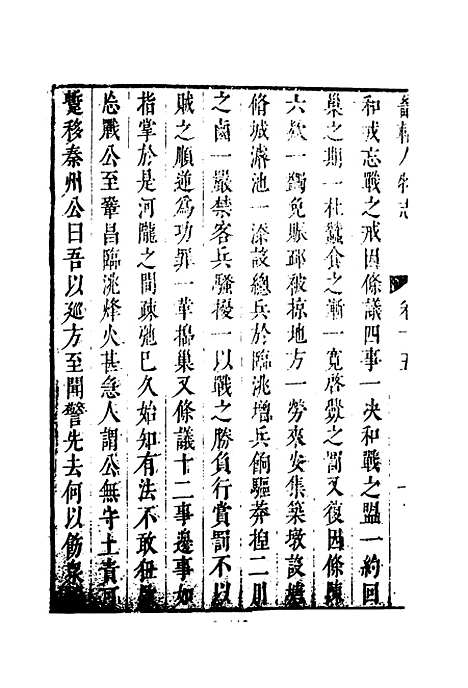 人物志
和戎忘戰之戒因條議四事一決和戰之盟一約回
巢之期一杜蠶食之漸一寬啓釁之罰又復因條陳
六欵一蠲免賑䘏被掠地方一勞來安集築墩設
脩城濬池一添設總兵於臨洮增兵餉驅莽揑二川
之鹵一嚴禁客兵騷擾一以戰之勝負行賞罰不以
賊之順逆為功罪一革搗巢又條議十二事邊事如
指掌於是河隴之間疎弛已久始知有法不敢
公至鞏昌臨洮烽火甚急人謂公無守土責可
蹔移秦州公曰吾以廵方至聞警先去何以